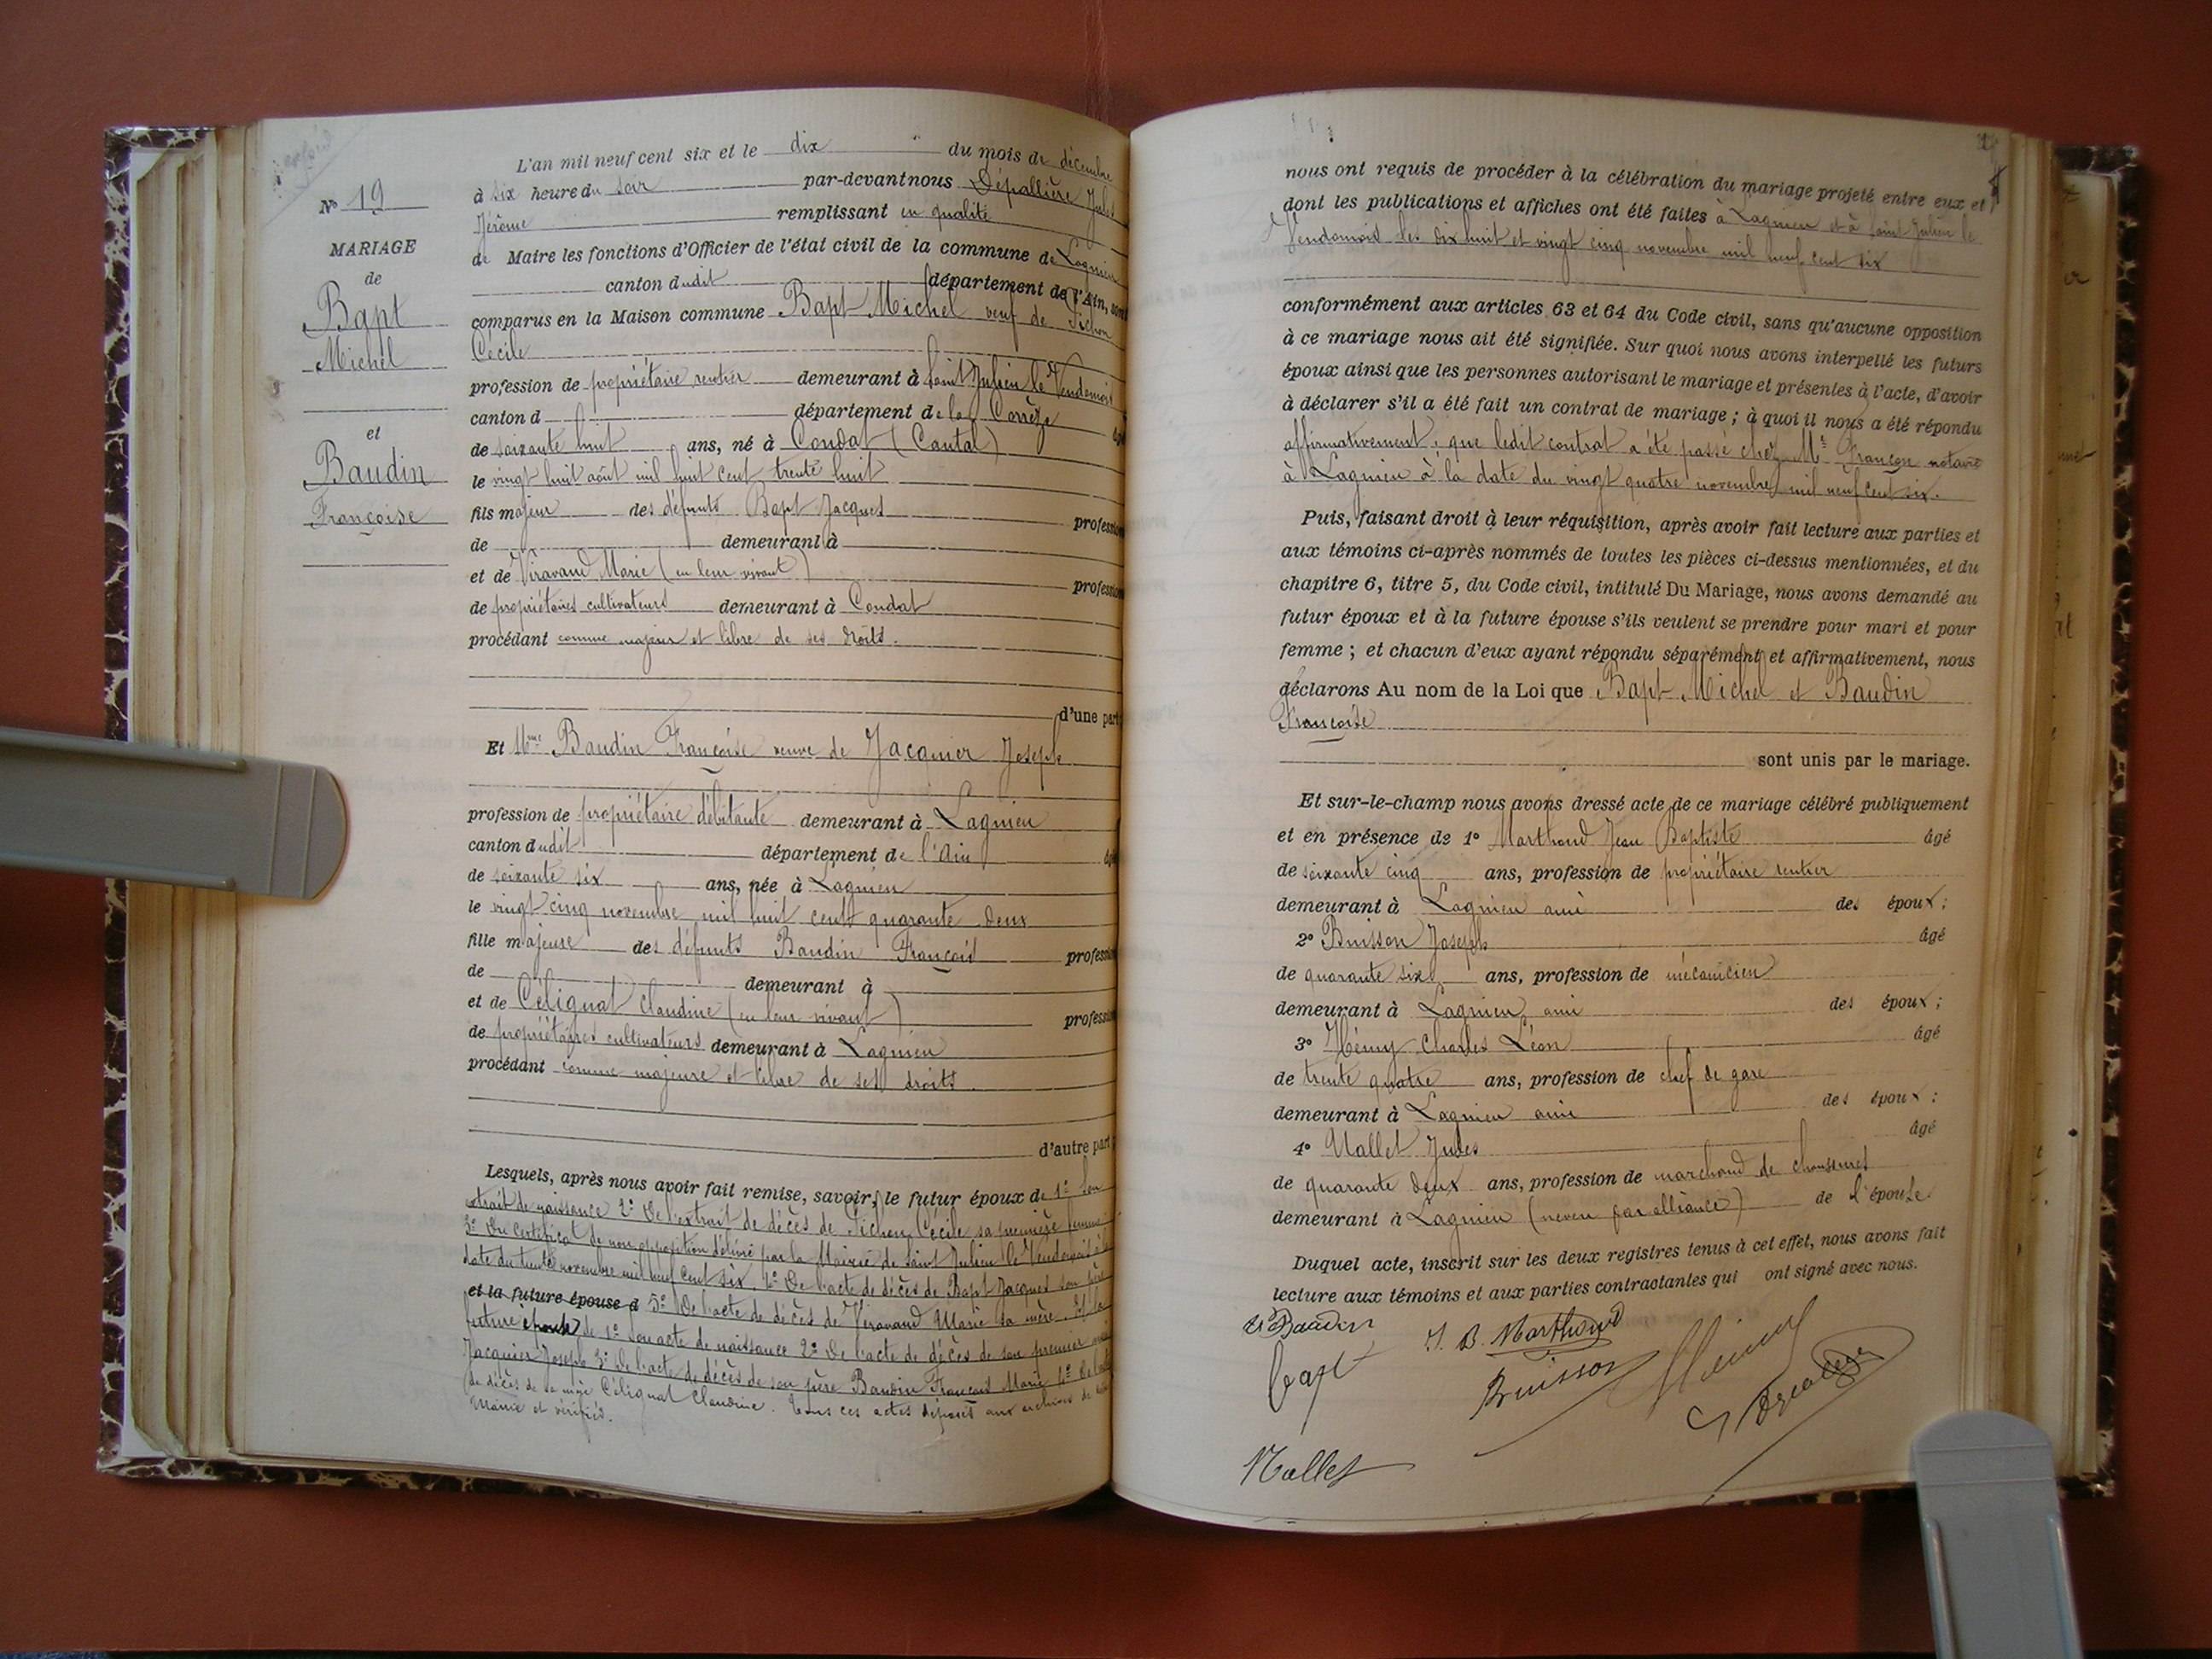 N° 19
MARIAGE
de
Bapt
Michel
et
Baudin
Françoise
L'an mil neuf cent six et le dix du mois de décembre
à six heure du soir par-devant nous Dépallière Jules
Jérôme remplissant en qualité
de Maire les fonctions d'Officier de l'état civil de la commune de Lagnieu
canton dudit département de l'Ain, sont
comparus en la Maison commune Bapt Michel veuf de Fichon
Cécile
profession de propriétaire rentier demeurant à Saint Julien le Vendomois
canton d département de la Corrèze âgé
de soixante huit ans, né à Condat (Cantal)
le vingt huit août mil huit cent trente huit
fils majeur des défunts Bapt Jacques profession
de demeurant à
et de Viravaud Marie (en leur vivant) profession
de propriétaires cultivateurs demeurant à Condat
procédant comme majeur et libre de ses droits.
d'une part
Et Mme Baudin Françoise veuve de Jacquier Joseph
profession de propriétaire débitante demeurant à Lagnieu
canton dudit département de l'Ain âgé
de soixante six ans, née à Lagnieu
le vingt cinq novembre mil huit cent quarante deux
fille majeure des défunts Baudin François profession
de demeurant à
et de Célignat Claudine (en leur vivant) profession
de propriétaires cultivateurs demeurant à Lagnieu
procédant comme majeure et libre de ses droits
d'autre part
Lesquels, après nous avoir fait remise, savoir, le futur époux de 1° Son
extrait de naissance 2° De l'extrait de décès de Fichon Cécile sa première femme
3° Du Certificat de non opposition délivré par la Mairie de Saint Julien le Vendomois à la
date du trente novembre mil neuf cent six. 4° De l'acte de décès de Bapt Jacques son père
et la future épouse d 5° De l'acte de décès de Viravaud Marie sa mère. Et la
future épouse de 1° Son acte de naissance 2° De l'acte de décès de son premier mari
Jacquier Joseph 3° De l'acte de décès de son père Baudin François Marie 4° De l'acte
de décès de sa mère Célignat Claudine. Tous ces actes déposés aux archives de
Mairie et vérifiés.
nous ont requis de procéder à la célébration du mariage projeté entre eux et
dont les publications et affiches ont été faites à Lagnieu et à Saint Julien le
Vendomois les dix huit et vingt cinq novembre mil neuf cent six
conformément aux articles 63 et 64 du Code civil, sans qu'aucune opposition
à ce mariage nous ait été signifiée. Sur quoi nous avons interpellé les futurs
époux ainsi que les personnes autorisant le mariage et présentes à l'acte, d'avoir
à déclarer s'il a été fait un contrat de mariage ; à quoi il nous a été répondu
affirmativement, que ledit contrat a été passé chez Me Françon notaire
à Lagnieu à la date du vingt quatre novembre mil neuf cent six.
Puis, faisant droit à leur réquisition, après avoir fait lecture aux parties et
aux témoins ci-après nommés de toutes les pièces ci-dessus mentionnées, et du
chapitre 6, titre 5, du Code civil, intitulé Du Mariage, nous avons demandé au
futur époux et à la future épouse s'ils veulent se prendre pour mari et pour
femme ; et chacun d'eux ayant répondu séparément et affirmativement, nous
déclarons Au nom de la Loi que Bapt Michel et Baudin
Françoise
sont unis par le mariage.
Et sur-le-champ nous avons dressé acte de ce mariage célébré publiquement
et en présence de 1° Marthoud Jean Baptiste âgé
de soixante cinq ans, profession de propriétaire rentier
demeurant à Lagnieu ami des époux ;
2° Buisson Joseph âgé
de quarante six ans, profession de mécanicien
demeurant à Lagnieu ami des époux ;
3° Hémy Charles Léon âgé
de trente quatre ans, profession de chef de gare
demeurant à Lagnieu ami des époux ;
4° Mallet Jules âgé
de quarante deux ans, profession de marchand de chaussures
demeurant à Lagnieu (neveu par alliance) de l'épouse
Duquel acte, inscrit sur les deux registres tenus à cet effet, nous avons fait
lecture aux témoins et aux parties contractantes qui ont signé avec nous.
Baudin
J. B. Marthoud
bapt
Buisson
Mallet